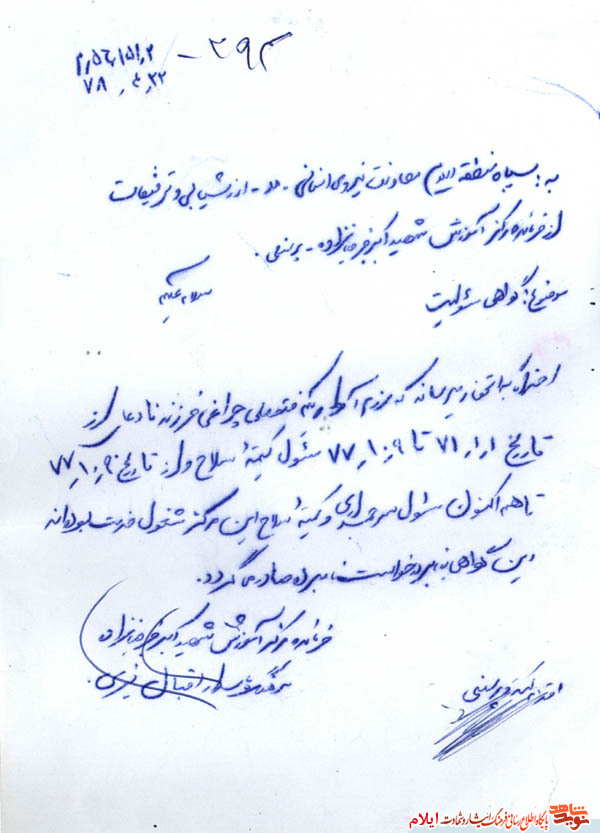 ۳۹۴ -
۷۸ , ۴ , ۲۲
به: سپاه منطقه ایلام معاونت نیروی انسانی - مد - ارزشیابی و ترفیعات
از: فرمانده مرکز آموزش شهید اکبر فرجیانزاده - پرسنلی.
موضوع: گواهی مسئولیت
سلام علیکم
احتراماً به استحضار میرساند که برادر فتحعلی چراغی فرزند نادعلی از
تاریخ ۷۱,۱,۱ تا ۷۷,۱۰,۹ مسئول کمیته سلاح و از تاریخ ۷۷,۱۰,۹
تا هم اکنون مسئول و کمیته سلاح این مرکز مشغول خدمت بوده‌اند
این گواهی بنابر درخواست نامبرده صادر می گردد.
فرمانده مرکز آموزش شهید اکبر فرجیانزاده
اقبال
شاهد
نوید
پایگاه اطلاع رسانی فرهنگ ایثار و شهادت ایلام